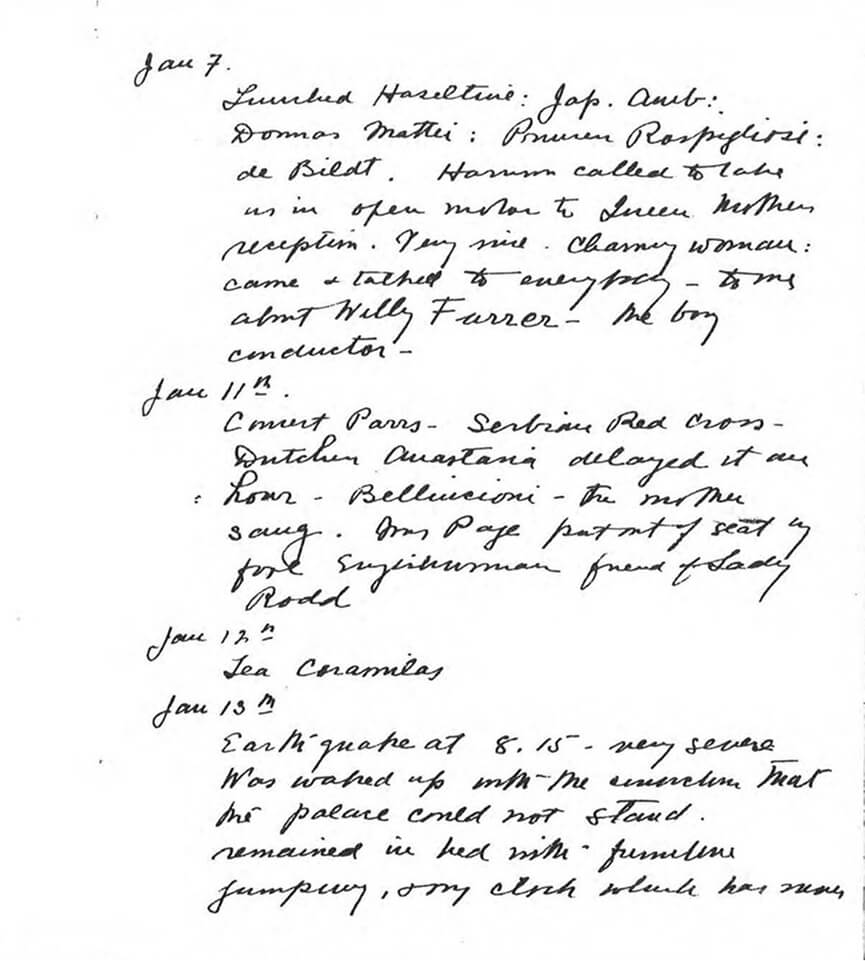 Jan 7.
Lunched Haseltine: Jap. Amb:
Donnas Mattei: Rospigliosi:
de Bildt. called to take
us in open motor to Queen Mothers
reception. Very nice. Charming woman:
came & talked to everybody - to me
about Willy Furrer - the boy
conductor -
Jan 11th.
Concert Paris - Serbian Red Cross -
Dutchess Anastasia delayed it an
hour - Bellincioni - the mother
sang. Mrs Page put out of seat by
fool Englishwoman friend of Lady
Rodd
Jan 12th
Tea Caramilas
Jan 13th
Earthquake at 8.15 - very severe
Was waked up with the conviction that
the palace could not stand.
remained in bed with furniture
jumping, & my clock which has never